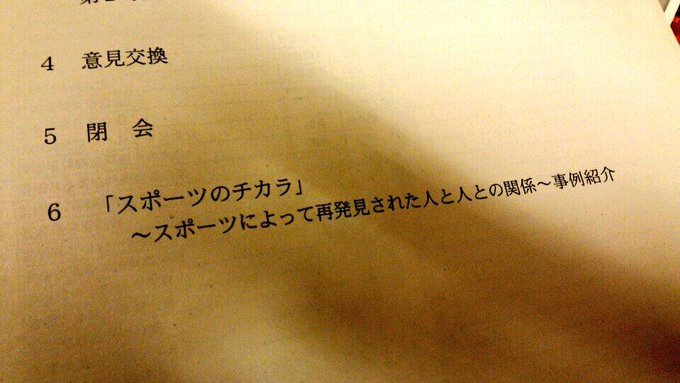 4 意見交換
5 閉 会
6 「スポーツのチカラ」
～スポーツによって再発見された人と人との関係～事例紹介